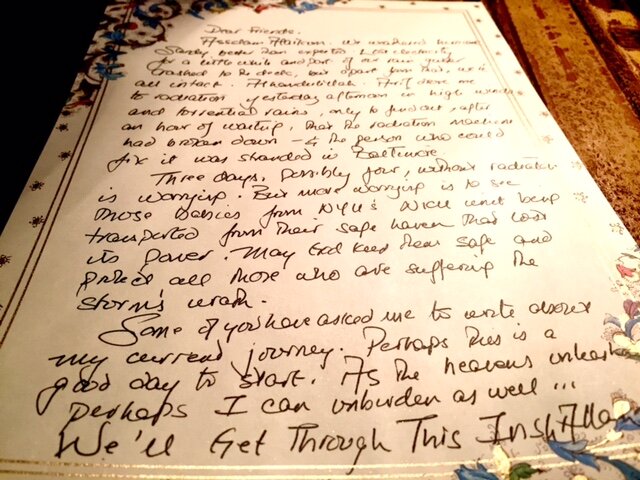 Dear Friends.
Assalam Alaikum. We weathered hurricane
Sandy better than expected. Lost electricity
for a little while and part of our rain gutter
crashed to the deck, but apart from that, we're
all intact. Alhamdulillah. Arif drove me
to radiation yesterday afternoon in high winds
and torrential rains, only to find out, after
an hour of waiting, that the radiation machine
had broken down - & the person who could
fix it was stranded in Baltimore
Three days, possibly four, without radiation
is worrying. But more worrying is to see
those babies from NYU's NICU unit being
transported from their safe haven that lost
its power. May God keep them safe and
protect all those who are suffering the
storm's wrath.
Some of you have asked me to write about
my current journey. Perhaps this is a
good day to start. As the heavens unleash
perhaps I can unburden as well ...
We'll Get Through This InshAllah